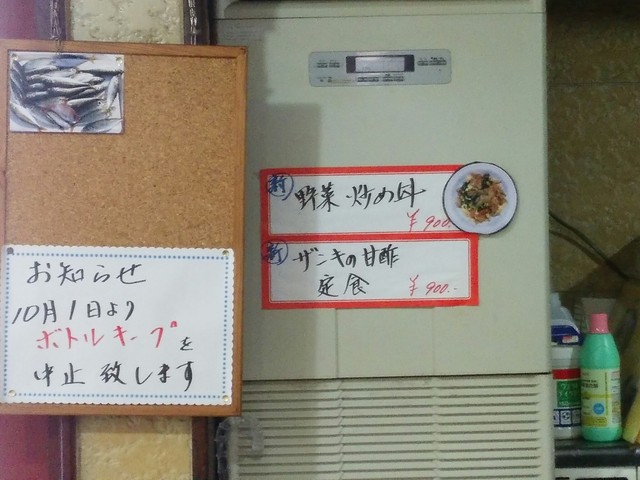 お知らせ
10月1日より
ボトルキープを
中止致します
新 野菜炒め丼
¥900.-
新 ザンキの甘酢
定食 ¥900.-